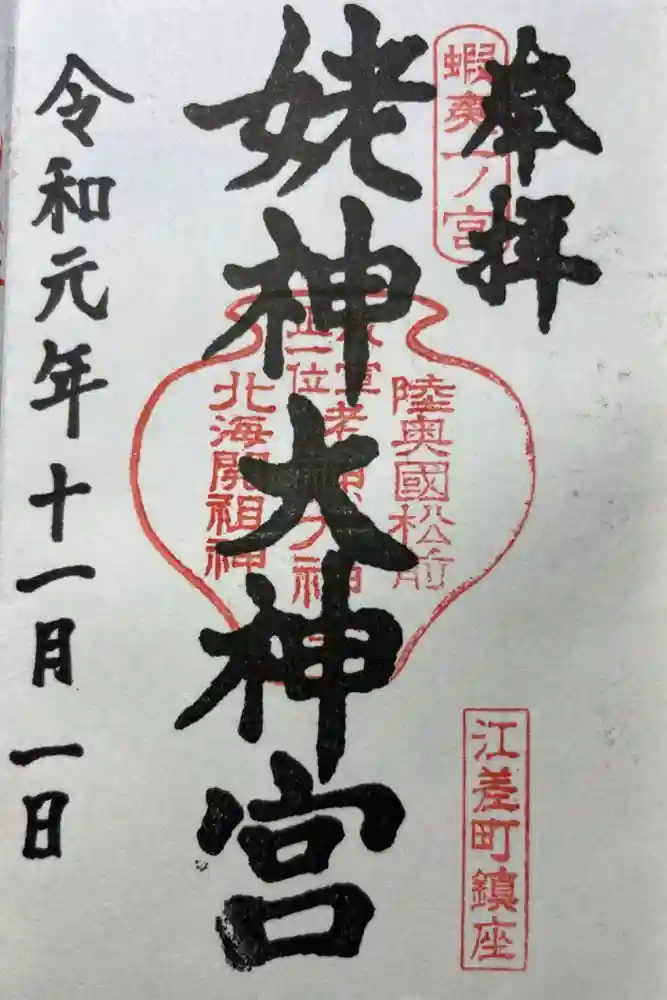 奉拝
蝦夷一ノ宮
陸奥國松前
姥神大神宮
正一位
北海開祖神
江差町鎮座
令和元年十一月一日